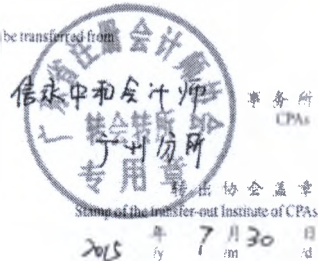 be transferred from
信永中和会计师
事务所
CPAs
广州分所
广东省注册会计师协会
转会转所
专用章
转出协会盖章
Stamp of the transfer-out Institute of CPAs
2015 年 7 月 30 日
/y /m /d